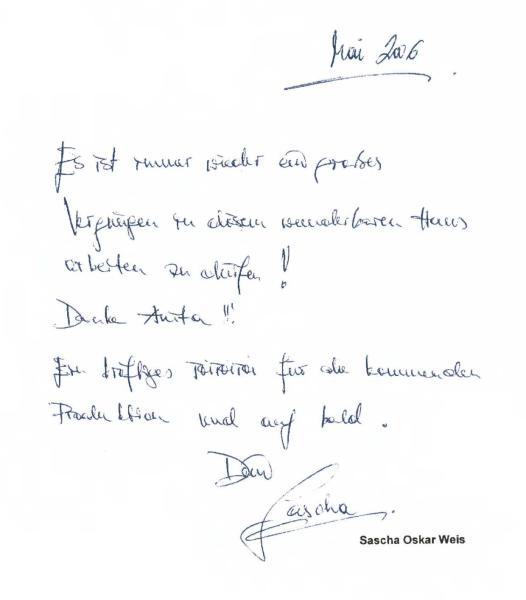 Mai 2006
Es ist immer wieder ein großes
Vergnügen in diesem wunderbaren Haus
arbeiten zu dürfen!
Danke Anita!!!
Ein kräftiges toitoitoi für die kommenden
Produktion und auf bald.
Dein
Sascha
Sascha Oskar Weis